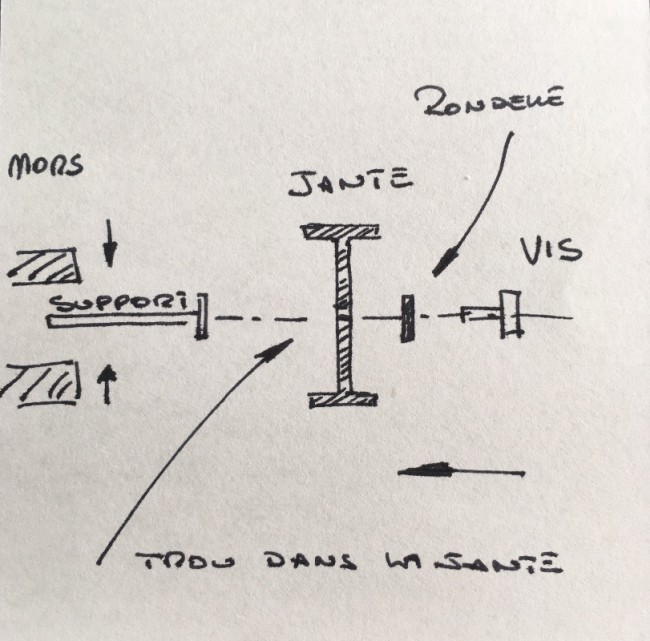 RONDELLE
MORS
JANTE
VIS
SUPPORT
TROU DANS LA JANTE